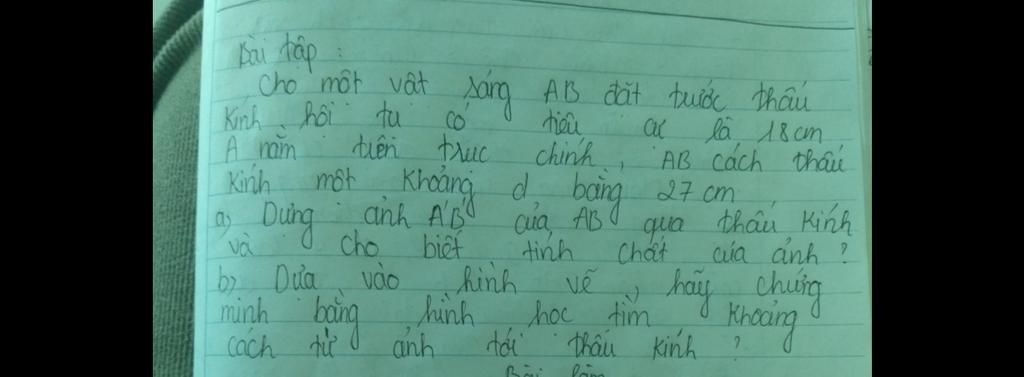 Bài tập :
Cho một vật sáng AB đặt trước thấu
Kính hội tụ có tiêu cự là 18cm
A nằm trên trục chính, AB cách thấu
Kính một Khoảng d bằng 27 cm
a) Dựng ảnh A'B' của AB qua thấu Kính
và cho biết tính chất của ảnh ?
b) Dựa vào hình vẽ, hãy chứng
minh bằng hình học tìm Khoảng
cách từ ảnh tới thấu Kính ?
Bài làm